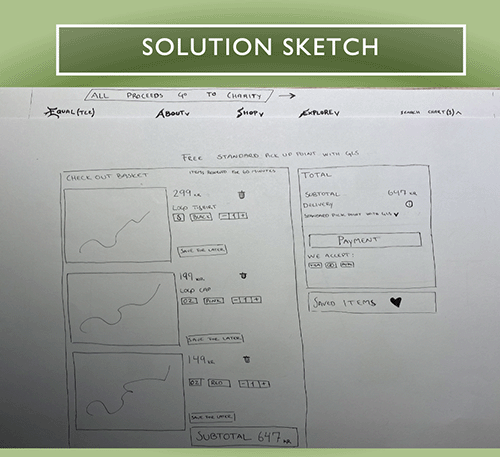 SOLUTION SKETCH
ALL PROCEEDS GO TO CHARITY
EQUAL(TEE) ABOUT SHOP EXPLORE SEARCH CHART(3)
FREE STANDARD PICK UP POINT WITH GLS
CHECK OUT BASKET
ITEMS RESERVED FOR 60 MINUTES
299 KR
LOGO T-SHIRT
BLACK - 1 +
SAVE THE LATER
199 KR
LOGO CAP
- 1 +
SAVE THE LATER
149 KR
RED - 1 +
SAVE THE LATER
SUBTOTAL 647 KR
TOTAL
SUBTOTAL 647 KR
DELIVERY
STANDARD PICK POINT WITH GLS
PAYMENT
WE ACCEPT:
VISA
SAVED ITEMS